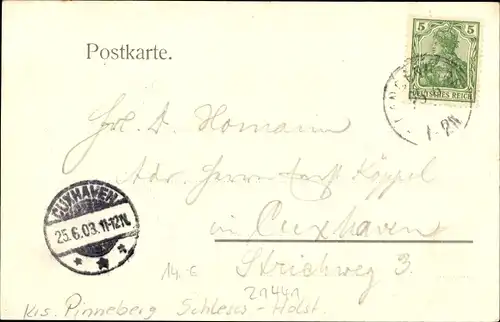 Postkarte.
5 5
DEUTSCHES REICH
1-2N
Frl. D. Homann
Adr. Herrn Köppel
in Cuxhaven
CUXHAVEN
25.6.03.11-12N.
14.€ Strichweg 3.
21441
Krs. Pinneberg Schlesw-Holst.